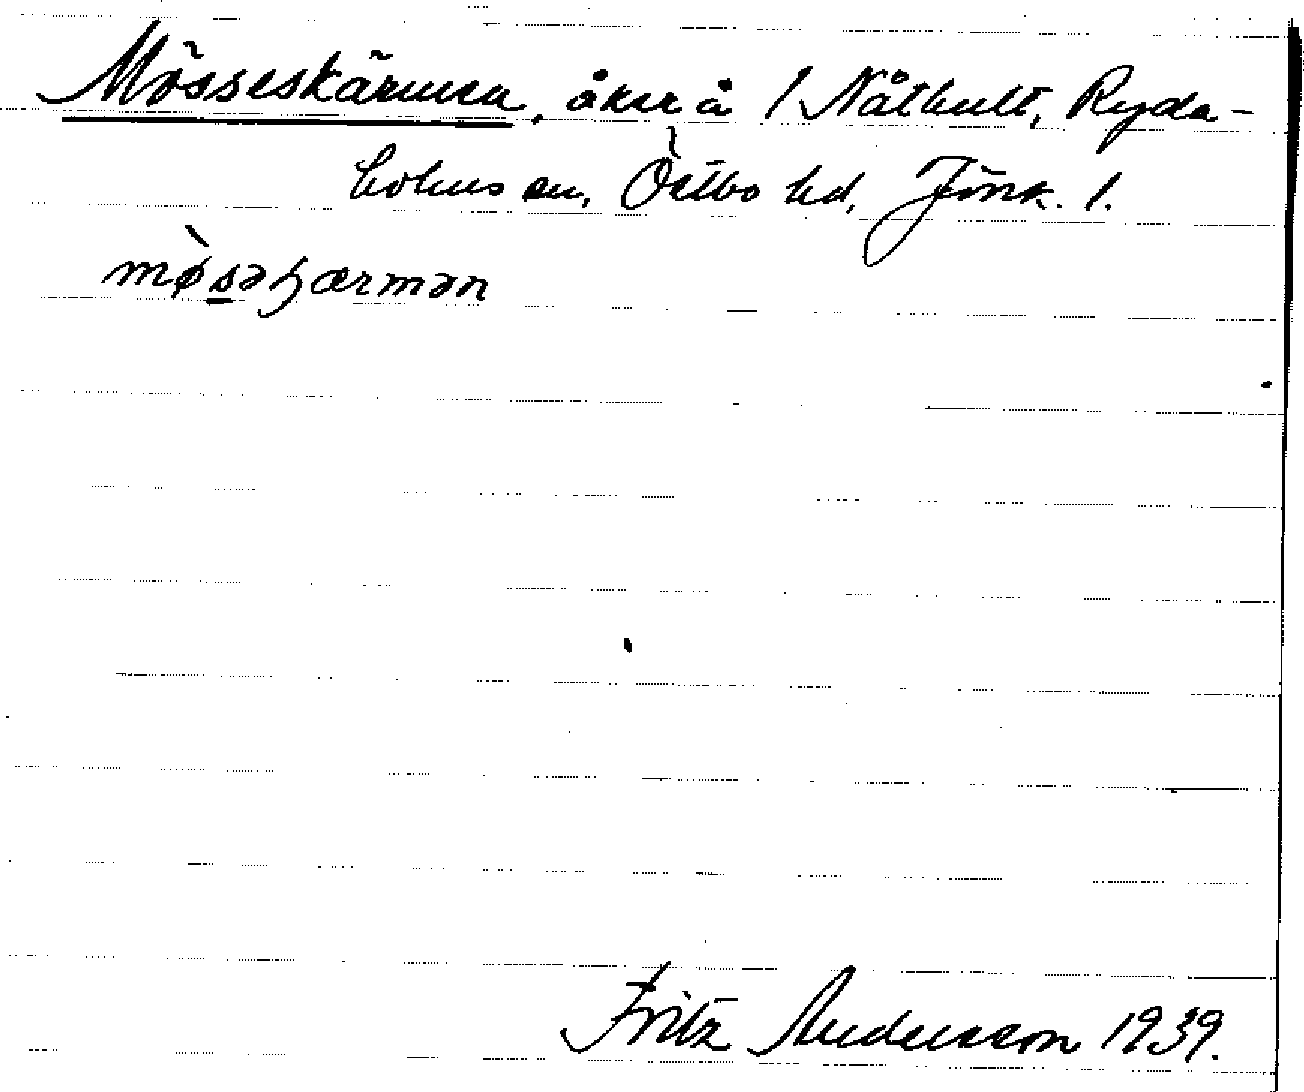 Mösseskärmen, åker å 1 Nåthult, Ryda-
holms sn, Östbo hd, Jönk. l.
mø̀səɧærmən
Fritz Andersson 1939.